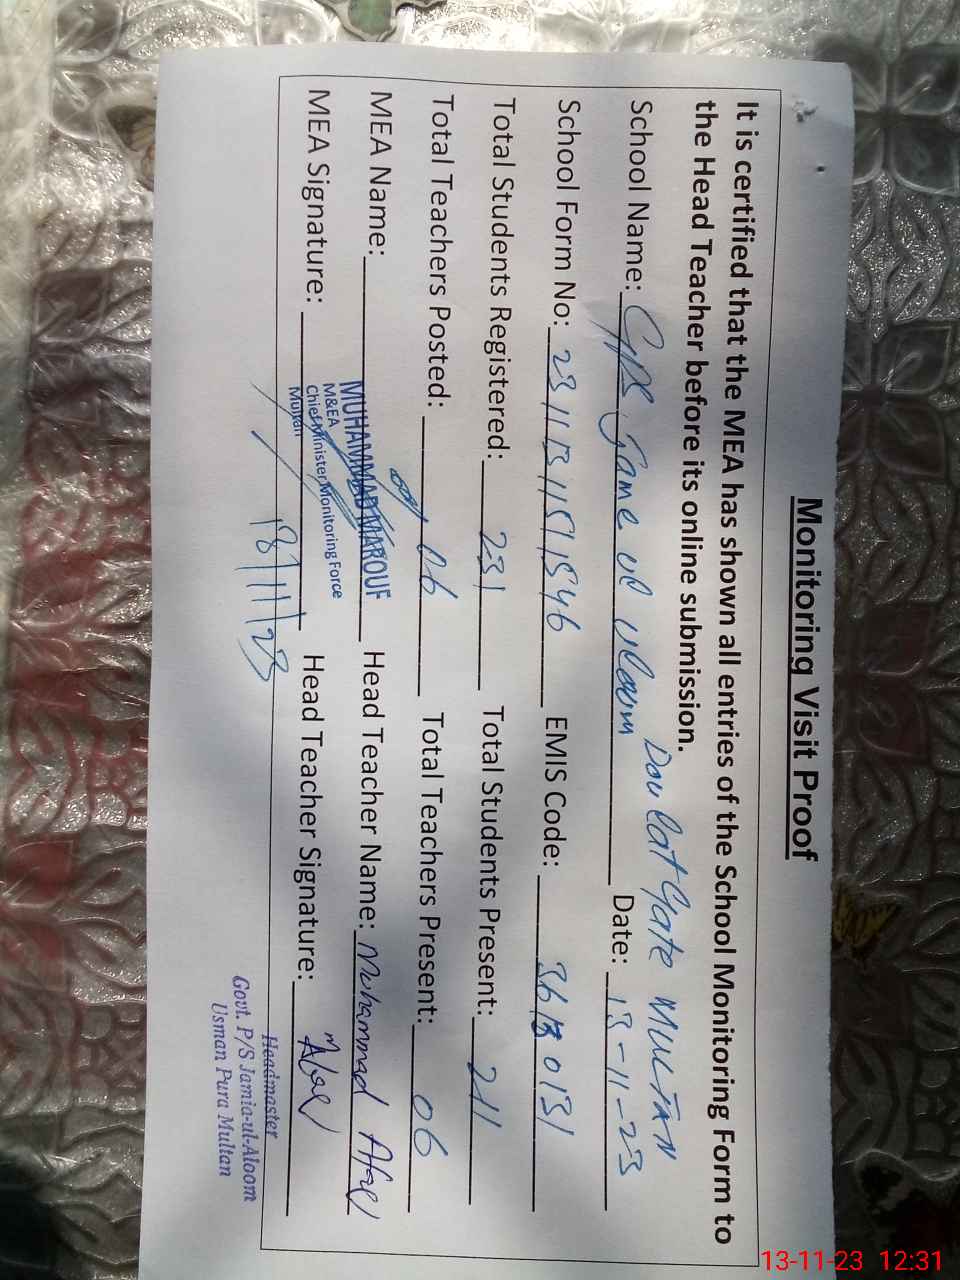 Monitoring Visit Proof
It is certified that the MEA has shown all entries of the School Monitoring Form to
the Head Teacher before its online submission.
Daulat Gate Multan
School Name: GPS Jame ul uloom Date: 13-11-23
School Form No: 23111311511546 EMIS Code: 36130131
Total Students Registered: 231 Total Students Present: 211
Total Teachers Posted: 06 Total Teachers Present: 06
MEA Name: MUHAMMAD MAROUF Head Teacher Name: Muhammad
M&EA
Chief Minister Monitoring Force
Multan
MEA Signature: Head Teacher Signature:
Headmaster
Govt. P/S Jamia-ul-Aloom
Usman Pura Multan
13-11-23 12:31